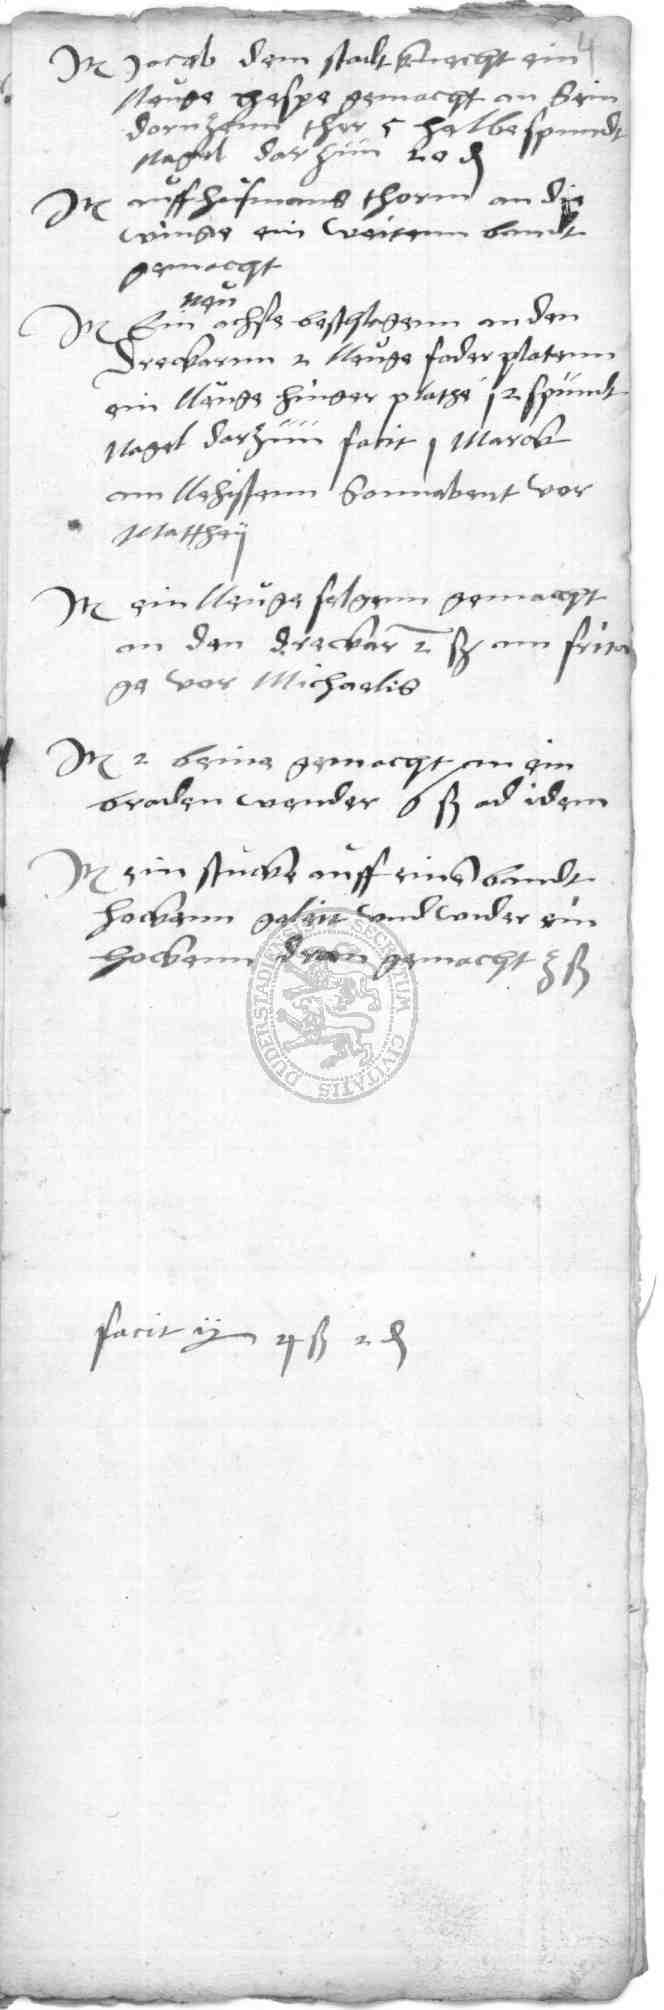 4
Jtem Jacob dem stadt knecht ein
Neuge hespe gemacht an Sein
dornzenn ther 5 halbespundt
Nagel dar zun 20 d
Jtem auff husmans thorm an die
winge ein weitenn bandt
gemacht
neu
Jtem Ein achse beschlagenn an den
Dreckarnn 2 Neuge fader platenn
ein Neuge hinger plathe 12 spundt
Nagel darzun facit 1 Marck
am Nehistenn Sonnabent vor
Matthey
Jtem ein Neuge felgenn gemacht
an den dreckar 2 ß am frita
ge vor Michaelis
Jtem 2 beine gemacht an ein
braden wender 6 ß ad idem
Jtem ein stucke auff einen bandt
hockenn geleit vnd wider ein
hockenn dran gemacht 3 ß
SECRETUM CIVITATIS DUDERSTADIENSIS
facit ij 4 ß 2 d